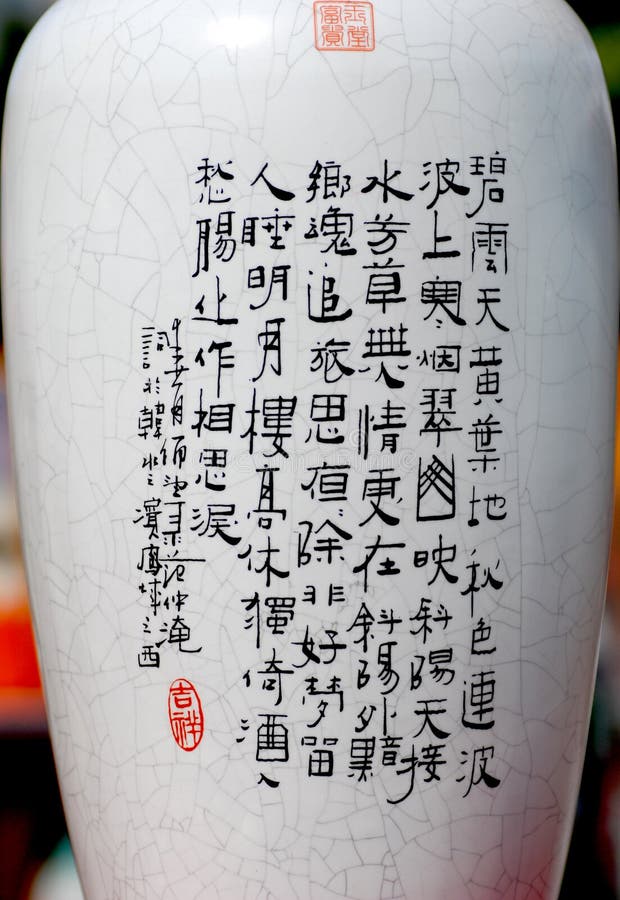 玉堂
富貴
碧雲天黄葉地秋色連波
波上寒烟翠山映斜陽天接
水芳草無情更在斜陽外黯
鄉魂追旅思夜〻除非好夢留
人睡明月樓高休獨倚酒入
愁腸化作相思淚
月范仲淹
詞於韓水之濱鳳坪之西
吉祥